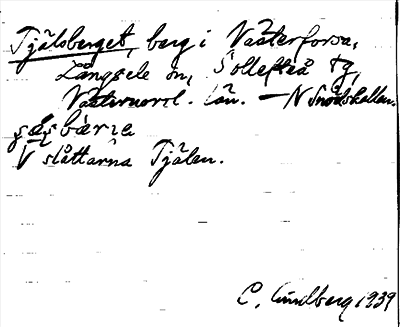 Tjälsberget, berg i Västerforsa,
Långsele sn, Sollefteå tg,
Västernorrl. län. — N Snödskallen.
V slåttarna Tjälen.
C. Lindberg 1939